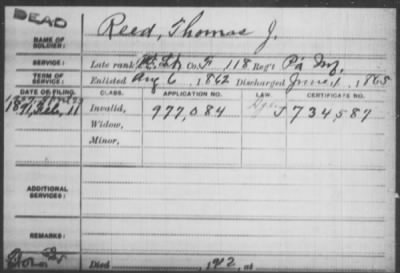 DEAD
NAME OF SOLDIER: Reed, Thomas J.
SERVICE: Late rank Co. F, 118 Reg't Pa Inf.
TERM OF SERVICE: Enlisted Aug 6, 1862 Discharged June 1, 1865
DATE OF FILING. CLASS. APPLICATION NO. LAW. CERTIFICATE NO.
Invalid, 977,084 734587
Widow,
Minor,
ADDITIONAL SERVICES:
REMARKS:
Died , 19 2, at